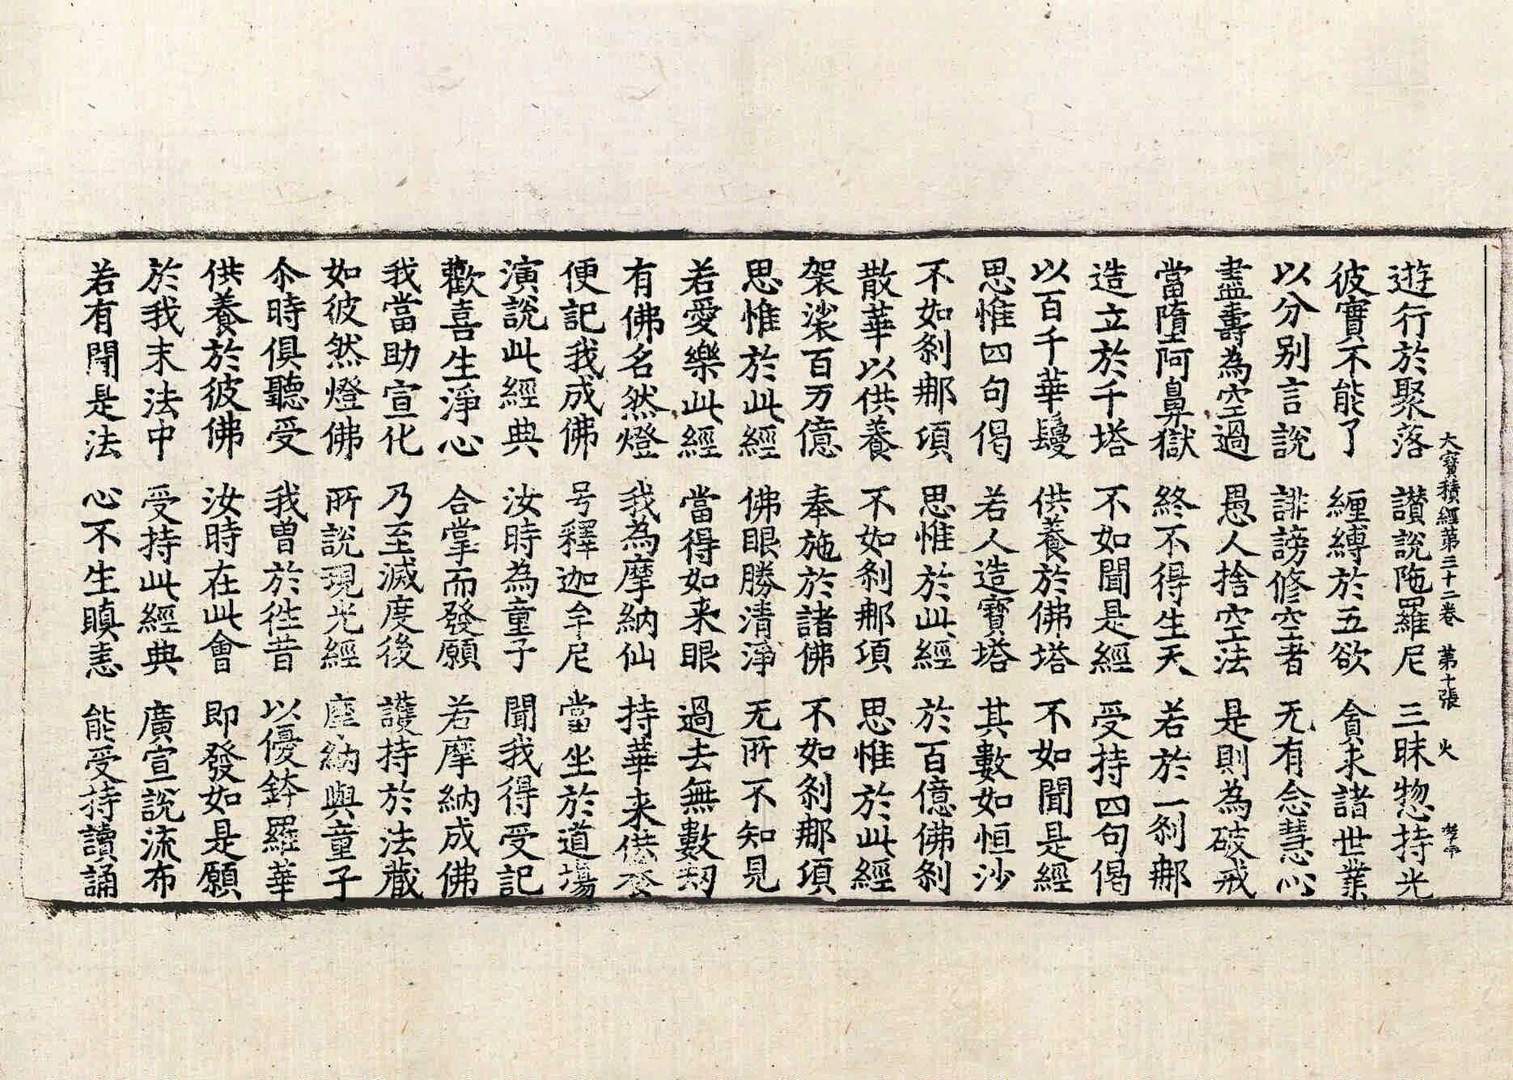 大寶積經第三十二卷 第十張 火
遊行於聚落 讃說陁羅尼 三昧惣持光
彼實不能了 纒縛於五欲 貪求諸世業
以分别言說 誹謗修空者 无有念慧心
盡壽為空過 愚人捨空法 是則為破戒
當墮阿鼻獄 終不得生天 若於一刹那
造立於千塔 不如聞是經 受持四句偈
以百千華鬘 供養於佛塔 不如聞是經
思惟四句偈 若人造寶塔 其數如恒沙
不如刹那項 思惟於此經 於百億佛刹
散華以供養 不如刹那項 思惟於此經
袈裟百万億 奉施於諸佛 不如刹那項
思惟於此經 佛眼勝清淨 无所不知見
若愛樂此經 當得如来眼 過去無數劫
有佛名然燈 我為摩納仙 持華来供養
便記我成佛 号釋迦牟尼 當坐於道場
演說此經典 汝時為童子 聞我得受記
歡喜生淨心 合掌而發願 若摩納成佛
我當助宣化 乃至滅度後 護持於法藏
如彼然燈佛 所說現光經 摩納與童子
尒時俱聽受 我曽於徃昔 以優鉢羅華
供養於彼佛 汝時在此會 即發如是願
於我末法中 受持此經典 廣宣說流布
若有聞是法 心不生瞋恚 能受持讀誦